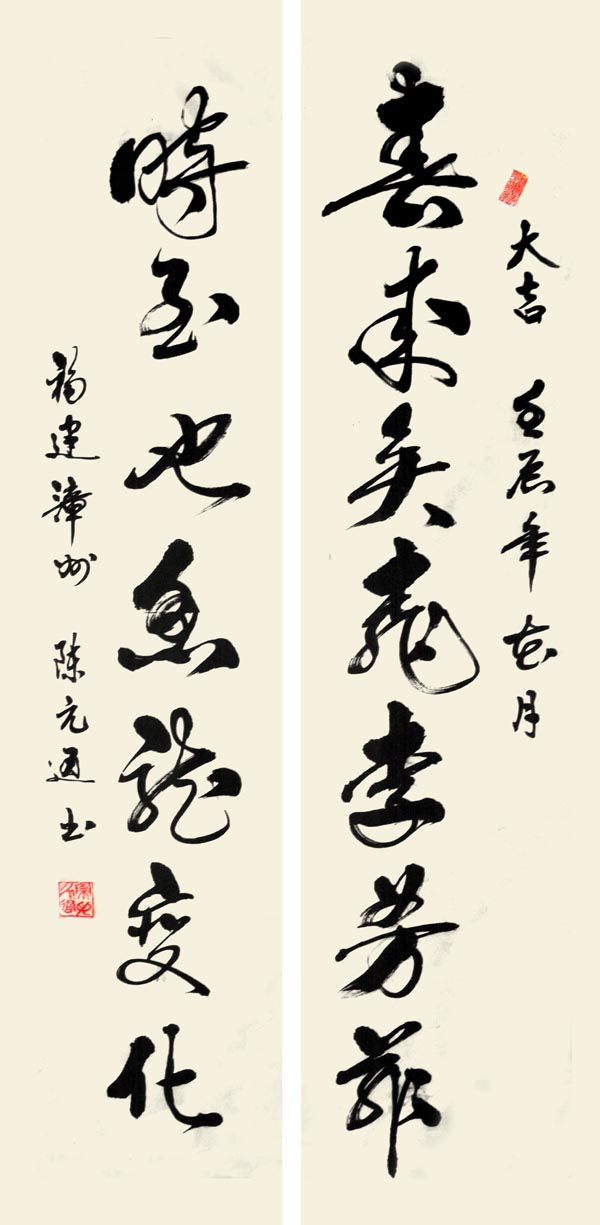 大吉 壬辰年花月
春來矣桃李芳菲
時至也魚龍變化
福建漳州 陳元通書